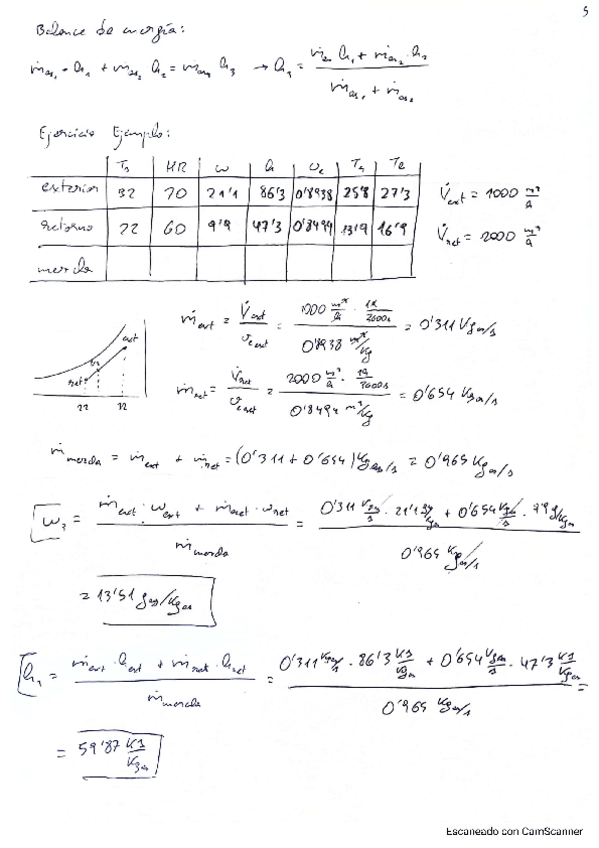 5
Balance de energía:
ṁas₁ · h₁ + ṁas₂ h₂ = ṁas₃ h₃ → h₃ = (ṁas₁ h₁ + ṁas₂ · h₂) / (ṁas₁ + ṁas₂)
Ejercicio Ejemplo:
Ts HR w h ve Tr Th
exterior 32 70 21'1 86'3 0'8938 25'8 27'3
retorno 22 60 9'9 47'3 0'8494 13'9 16'9
mezcla
V̇ext = 1000 m³/h
V̇ret = 2000 m³/h
ext
ret
22 32
ṁext = V̇ext / ve ext = (1000 m³/h · 1h/3600s) / (0'8938 m³/kg) = 0'311 Kgas/s
ṁret = V̇ret / ve ret = (2000 m³/h · 1h/3600s) / (0'8494 m³/kg) = 0'654 Kgas/s
ṁmezcla = ṁext + ṁret = (0'311 + 0'654) Kgas/s = 0'965 Kgas/s
w₃ = (ṁext · wext + ṁret · wret) / ṁmezcla = (0'311 Kgas/s · 21'1 g/Kgas + 0'654 Kgas/s · 9'9 g/Kgas) / (0'965 Kgas/s)
= 13'51 g/Kgas
h₃ = (ṁext · hext + ṁret · hret) / ṁmezcla = (0'311 Kgas/s · 86'3 KJ/Kgas + 0'654 Kgas/s · 47'3 KJ/Kgas) / (0'965 Kgas/s) =
= 59'87 KJ/Kgas
Escaneado con CamScanner